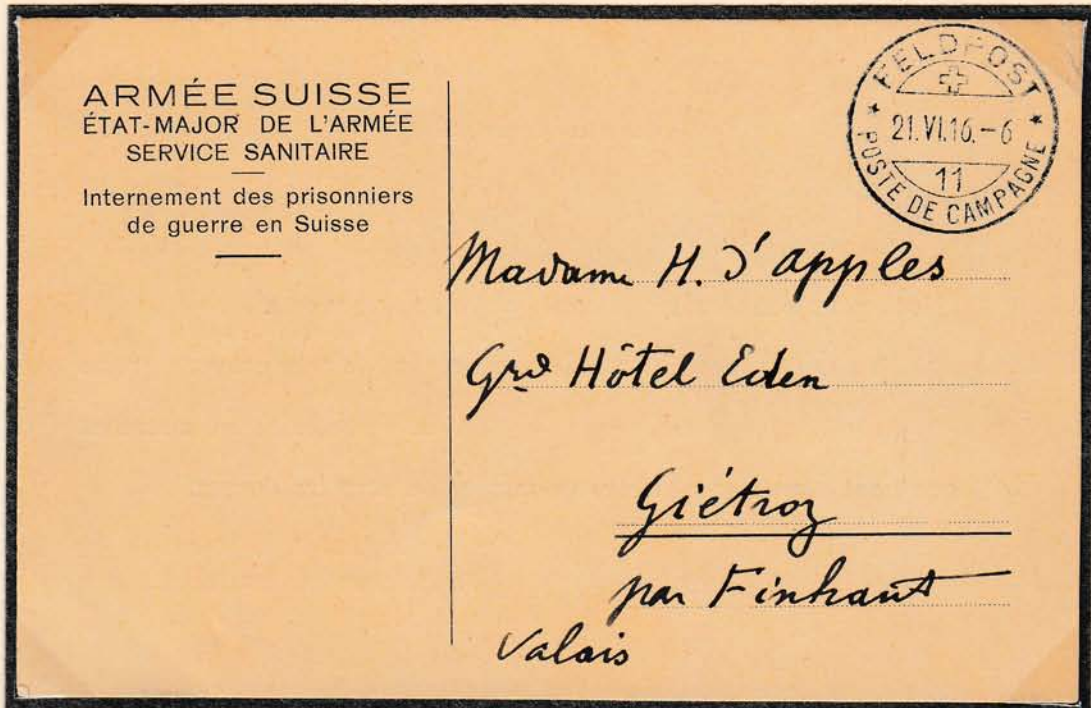 ARMÉE SUISSE
ÉTAT-MAJOR DE L'ARMÉE
SERVICE SANITAIRE
Internement des prisonniers
de guerre en Suisse
FELDPOST
21.VI.16.-6
11
POSTE DE CAMPAGNE
Madame H. d'apples
Grd Hôtel Eden
Giétroz
par Finhaut
Valais